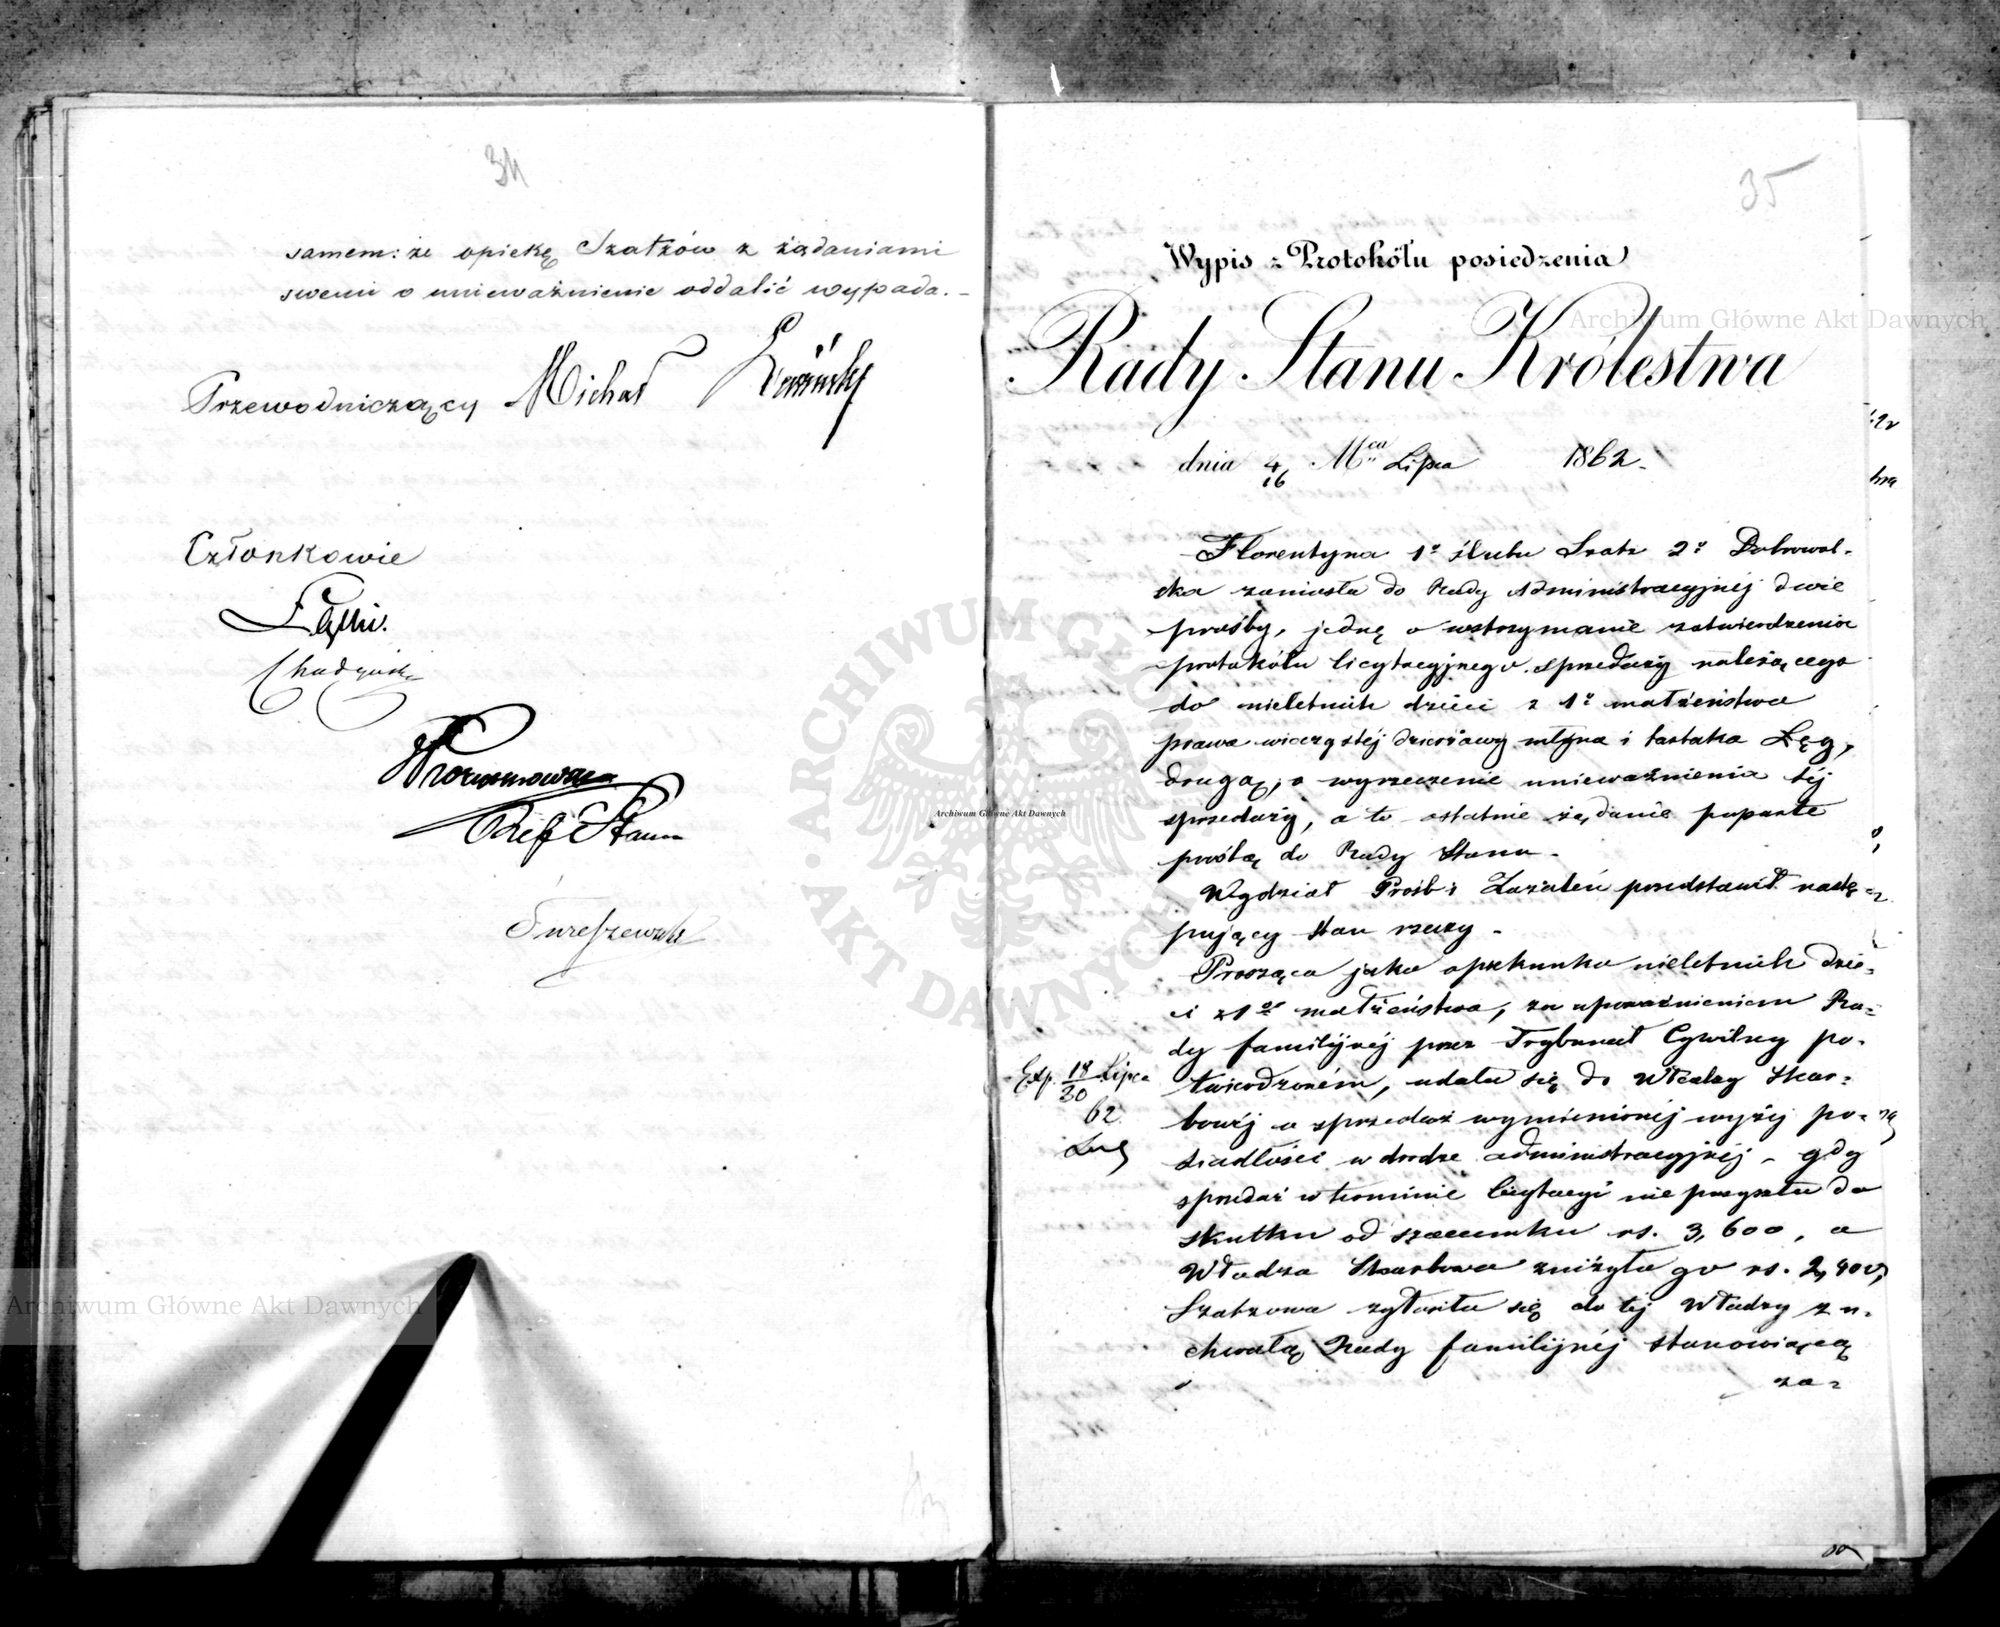 34
samem: że opiekę Szatzów z żądaniami
swemi o unieważnienie oddalić wypada. -
Przewodniczący Michał
Członkowie
Łęski.
Józef Stum
35
Wypis z Protokółu posiedzenia
Rady Stanu Królestwa
dnia 4/16 Mca Lipca 1862.
Florentyna 1º ślubu Szatz 2º Dobrowol-
ska zaniosła do Rady Administracyjnéj dwie
prośby, jednę o wstrzymanie zatwierdzenia
protokółu licytacyjnego sprzedaży należącego
do nieletnich dzieci z 1º małżeństwa
prawa wieczystej dzierżawy młyna i tartaka Łęg,
drugą, o wyrzeczenie unieważnienia téj
sprzedaży, a to ostatnie żądanie poparte
prośbą do Rady Stanu.
Wydział Próśb i Zażaleń przedstawił nastę=
pujący stan rzeczy -
Prosząca jako opiekunka nieletnich dzie=
ci z 1go małżeństwa, za upoważnieniem Ra=
dy familijnéj przez Trybunał Cywilny po-
twierdzoném, udała się do Władzy Skar=
bowéj o sprzedaż wymienionéj wyżéj po=
siadłości w drodze administracyjnéj - gdy
sprzedaż w terminie licytacyi nie przyszła do
skutku od szacunku rs. 3,600, a
Władza Skarbowa zniżyła go do rs. 2,400,
Szatzowa zgłosiła się do téj Władzy z u-
chwałą Rady familijnéj stanowiącą
za=
Exp. 18/30 Lipca
62
Archiwum Główne Akt Dawnych
Archiwum Główne Akt Dawnych
Archiwum Główne Akt Dawnych
ARCHIWUM GŁÓWNE AKT DAWNYCH